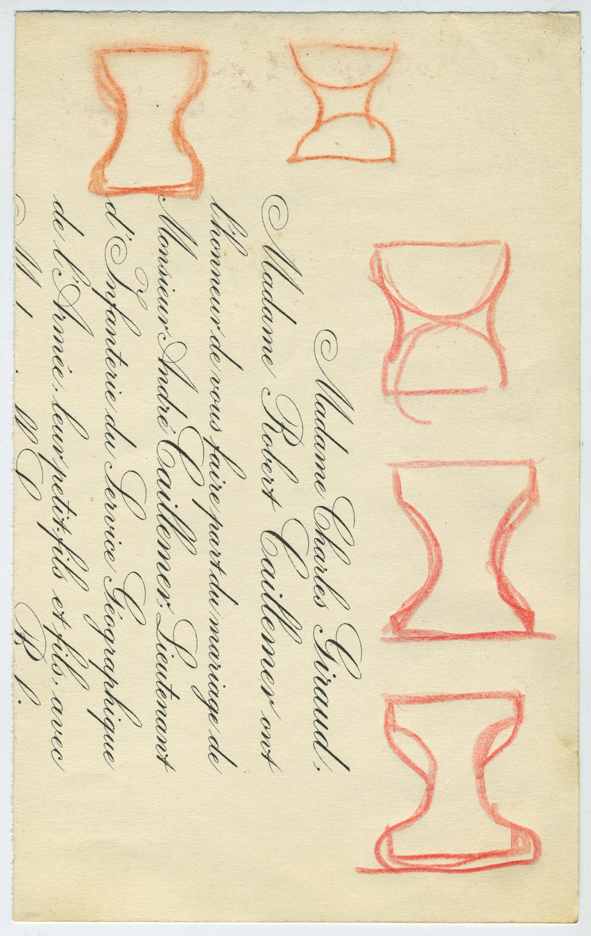 Madame Charles Giraud,
Madame Robert Caillemer ont
l'honneur de vous faire part du mariage de
Monsieur André Caillemer, Lieutenant
d'Infanterie du Service Géographique
de l'Armée, leur petit-fils et fils, avec